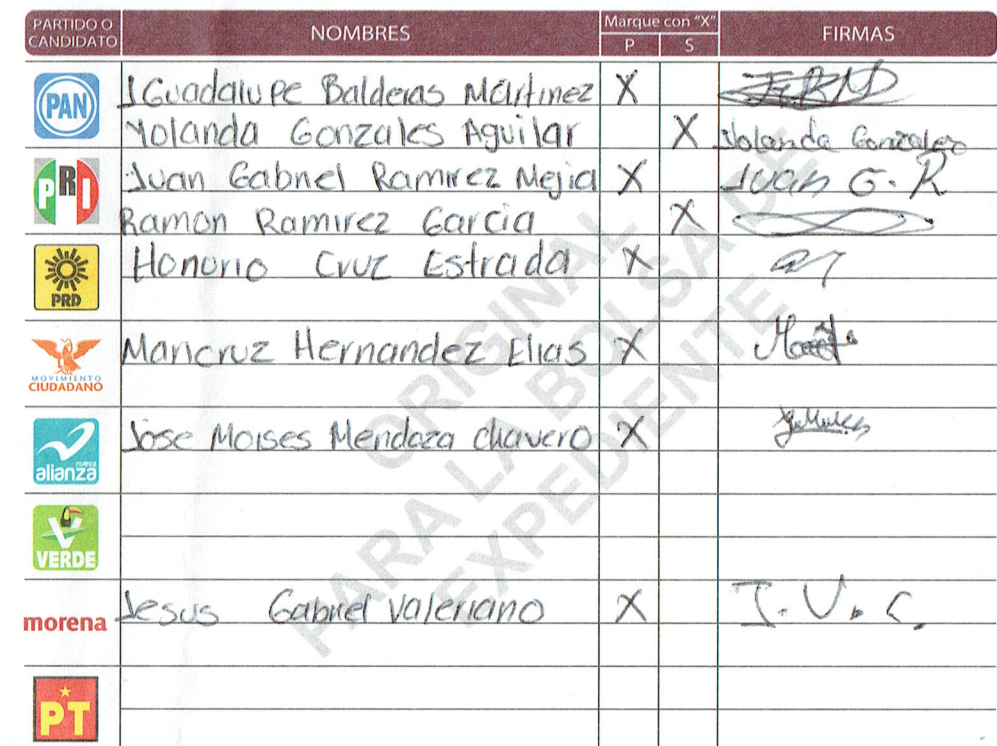 PARTIDO O CANDIDATO NOMBRES Marque con "X" P S FIRMAS
PAN J Guadalupe Balderas Martinez X
Yolanda Gonzales Aguilar X Yolanda Gonzales
PRI Juan Gabriel Ramirez Mejia X Juan G. R
Ramon Ramirez Garcia X
PRD Honorio Cruz Estrada X
MOVIMIENTO CIUDADANO Maricruz Hernandez Elias X
nueva alianza Jose Moises Mendoza chavero X
VERDE
morena Jesus Gabriel Valeriano X J. V. C.
PT
ORIGINAL
PARA LA BOLSA DE
EXPEDIENTE